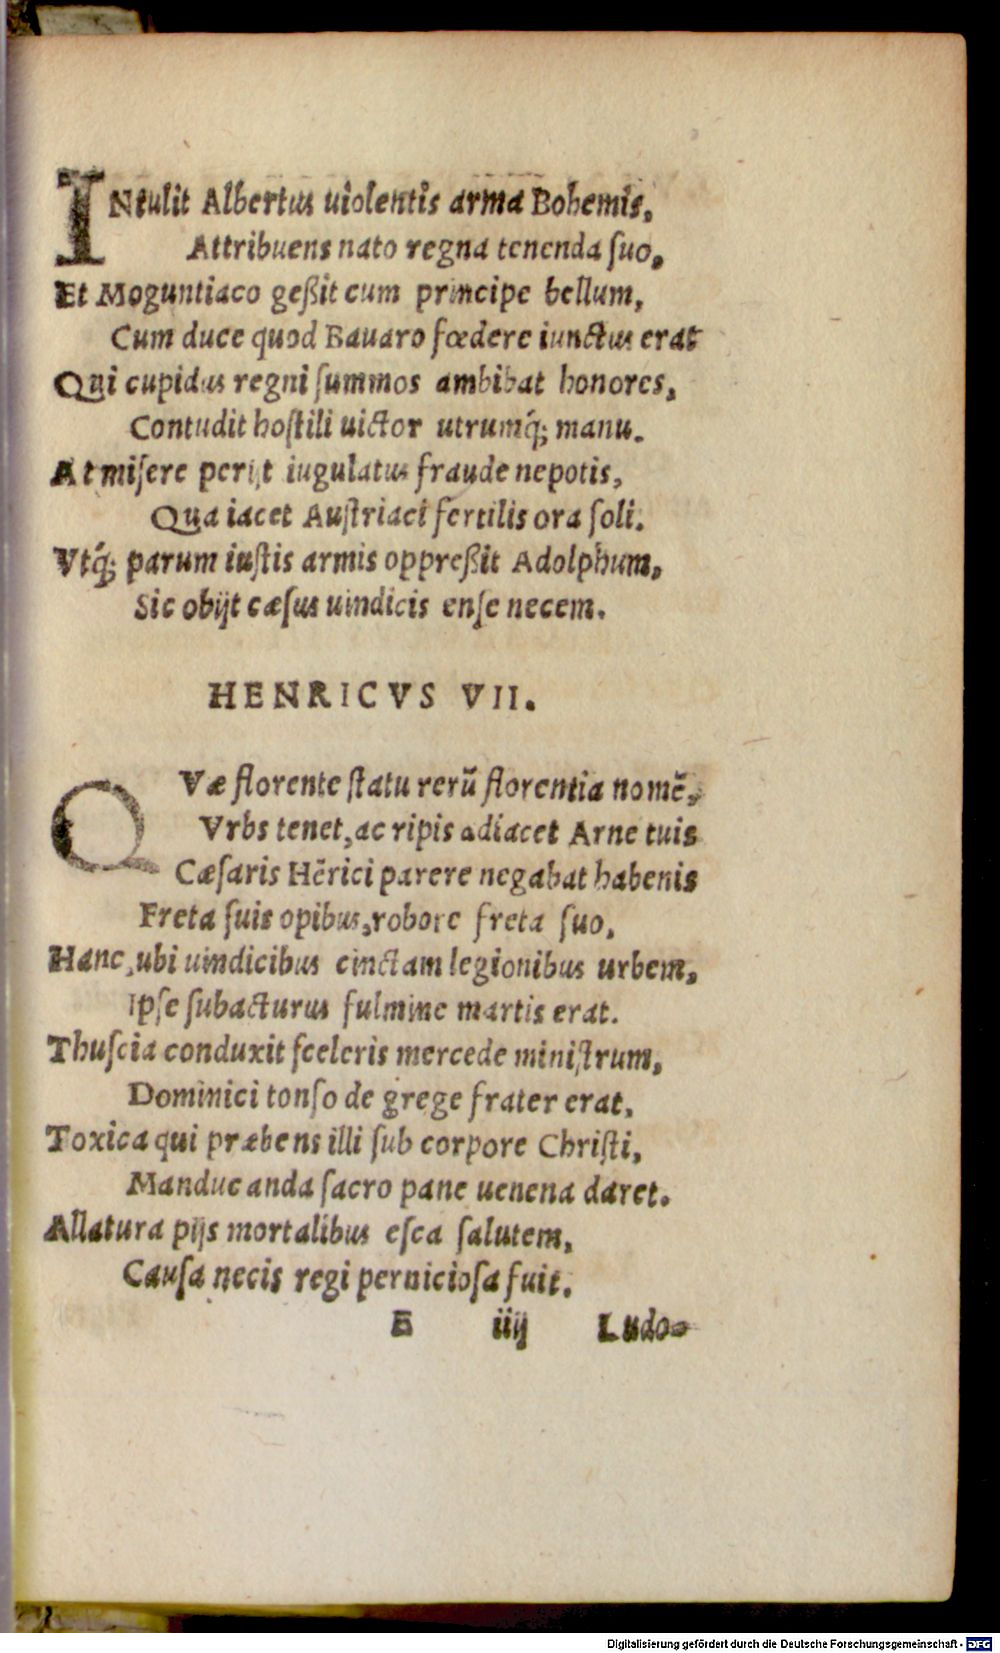 INtulit Albertus uiolentis arma Bohemis,
Attribuens nato regna tenenda ſuo,
Et Moguntiaco geßit cum principe bellum,
Cum duce quod Bauaro fœdere iunctus erat
Qui cupidus regni ſummos ambibat honores,
Contudit hoſtili uictor utrumq́; manu.
At miſere perijt iugulatus fraude nepotis,
Qua iacet Auſtriaci fertilis ora ſoli.
Vtq́; parum iuſtis armis oppreßit Adolphum,
Sic obijt cæſus uindicis enſe necem.
HENRICVS VII.
QVæ florente ſtatu rerũ florentia nomẽ,
Vrbs tenet, ac ripis adiacet Arne tuis
Cæſaris Hẽrici parere negabat habenis
Freta ſuis opibus, robore freta ſuo,
Hanc, ubi uindicibus cinctam legionibus urbem,
Ipſe ſubacturus fulmine martis erat.
Thuſcia conduxit ſceleris mercede miniſtrum,
Dominici tonſo de grege frater erat,
Toxica qui præbens illi ſub corpore Chriſti,
Manducanda ſacro pane uenena daret.
Allatura pijs mortalibus eſca ſalutem,
Cauſa necis regi pernicioſa fuit.
E iiij Ludo-
Digitalisierung gefördert durch die Deutsche Forschungsgemeinschaft - DFG